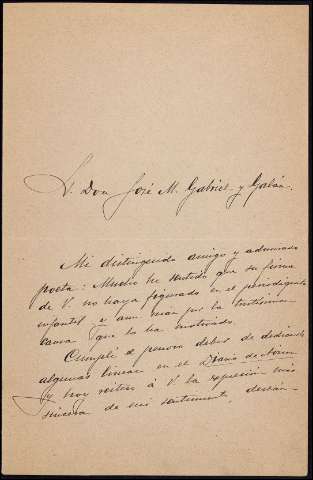 Sr. Don José M. Gabriel y Galán.
Mi distinguido amigo y admirado
poeta: Mucho he sentido que su firma
de V. no haya figurado en el periodiquito
infantil y aun mas por la tristísima
causa que lo ha motivado.
Cumplí el penoso deber de dedicarle
algunas líneas en el Diario de
y hoy reitero á V. la expresión más
sincera de mi sentimiento, deseán-